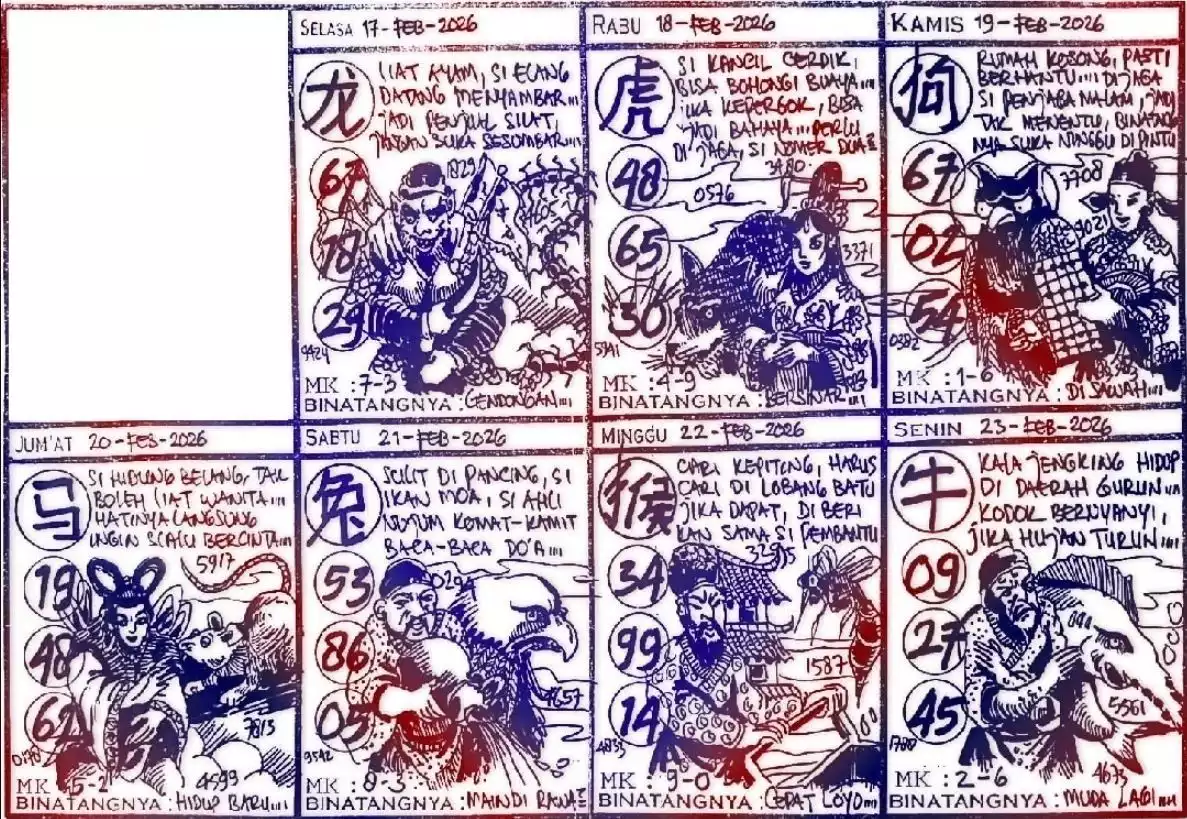 SELASA 17-FEB-2026
龙
LIAT AYAM, SI ELANG
DATANG MENYAMBAR....
JADI PENJUAL SILAT,
JANGAN SUKA SESUMBAR....
67
1829
7405
18
29
9424
MK : 7-3
BINATANGNYA : GENDONGAN....
RABU 18-FEB-2026
虎
SI KANCIL CERDIK,
BISA BOHONGI BUAYA....
JIKA KEPERGOK, BISA
JADI BAHAYA.... PERLU
DI JAGA, SI NOMER DUA²
48
3480
0576
65
3371
30
5941
MK : 4-9
BINATANGNYA : BERSINAR....
KAMIS 19-FEB-2026
狗
RUMAH KOSONG, PASTI
BERHANTU.... DI JAGA
SI PENJAGA MALAM, JADI
TAK MENENTU, BINATANG
NYA SUKA NINGGU DI PINTU
67
7708
9021
02
54
0382
MK : 1-6
BINATANGNYA : DI SAWAH....
JUM'AT 20-FEB-2026
马
SI HIDUNG BELANG, TAK
BOLEH LIAT WANITA....
HATINYA LANGSUNG
INGIN SLALU BERCINTA....
5917
19
48
62
7813
4599
MK : 5-2
BINATANGNYA : HIDUP BARU....
SABTU 21-FEB-2026
兔
SULIT DI PANCING, SI
IKAN MOA, SI AHLI
NUJUM KOMAT-KAMIT
BACA-BACA DO'A....
0294
53
86
4657
05
9542
MK : 8-3
BINATANGNYA : MAIN DI RAWA²
MINGGU 22-FEB-2026
猴
CARI KEPITING, HARUS
CARI DI LOBANG BATU
JIKA DAPAT, DI BERI
KAN SAMA SI PEMBANTU
34
99
1587
14
4833
MK : 9-0
BINATANGNYA : CEPAT LOYO....
SENIN 23-FEB-2026
牛
KALA JENGKING HIDUP
DI DAERAH GURUN....
KODOK BERNYANYI,
JIKA HUJAN TURUN....
09
27
45
5561
4673
MK : 2-6
BINATANGNYA : MUDA LAGI....